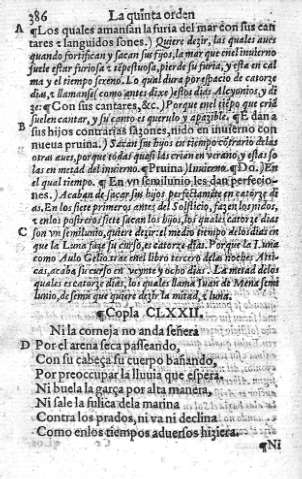 386 La quinta orden
A ¶Los quales amansan la furia del mar con sus can
tares z languidos sones.) Quiere dezir, las quales aues
quando fortifican y sacan sus hijos, la mar que enel inuierno
suele estar furiosa z tēpestuosa, pierde su furia, y esta en cal
ma y el tiempo sereno. Lo qual dura por espacio de catorze
dias, z llamanse (como antes dixe) estos dias Alcyonios, y di
ze: ¶Con sus cantares, &c.) Porque enel tiēpo que criā
suelen cantar, y su canto es querulo y apazible. ¶E dan a
B sus hijos contrarias sazones, nido en inuierno con
nueua pruina.) Sacan sus hijos en tiempo cōtrario de las
otras aues, porque todas quasi las crian en verano, y estas so
las en metad del inuierno. ¶Pruina.) Inuierno. ¶Do.) En
el qual tiempo. ¶ En vn semilunio les dan perfecio-
nes.) Acaban de sacar sus hijos perfectamēte en catorze di
as. En los siete primeros antes del Solsticio, fazen los nidos,
z en los postreros siete sacan los hijos, los quales catorze dias
C son vn semilunio, quiere dezir: el medio tiempo de los dias en
que la Luna faze su curso, es catorze dias. Porque la Luna
como Aulo Gelio trae enel libro tercero de las noches Atti-
cas, acaba su curso en veynte y ocho dias. La metad de los
quales es catorze dias, los quales llama Iuan de Mena semi
lunio, de semi que quiere dezir la mitad, z luna.
¶Copla CLXXII.
Ni la corneja no anda señera
D Por el arena seca passeando,
Con su cabeça su cuerpo bañando,
Por preoccupar la lluuia que espera.
Ni buela la garça por alta manera,
Ni sale la fulica dela marina
Contra los prados, ni va ni declina
Como enlos tiempos aduersos hiziera.
¶Ni